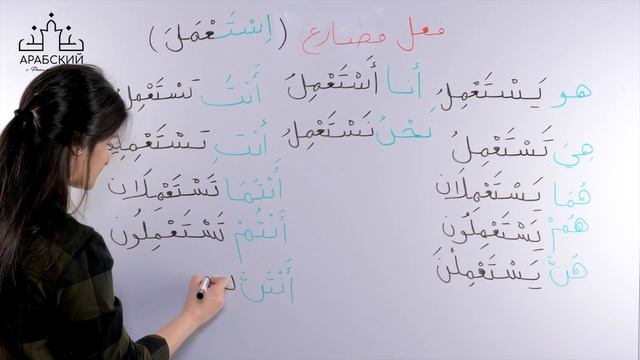 АРАБСКИЙ
فعل مضارع (اِسْتَعْمَلَ)
هو يَسْتَعْمِلُ
هِيَ تَسْتَعْمِلُ
هُمَا يَسْتَعْمِلَانِ
هُمْ يَسْتَعْمِلُونَ
هُنَّ يَسْتَعْمِلْنَ
أنا أَسْتَعْمِلُ
نَحْنُ نَسْتَعْمِلُ
أَنْتَ تَسْتَعْمِلُ
أَنْتِ تَسْتَعْمِلِين
أَنْتُمَا تَسْتَعْمِلَانِ
أَنْتُمْ تَسْتَعْمِلُونَ
أَنْتُنَّ